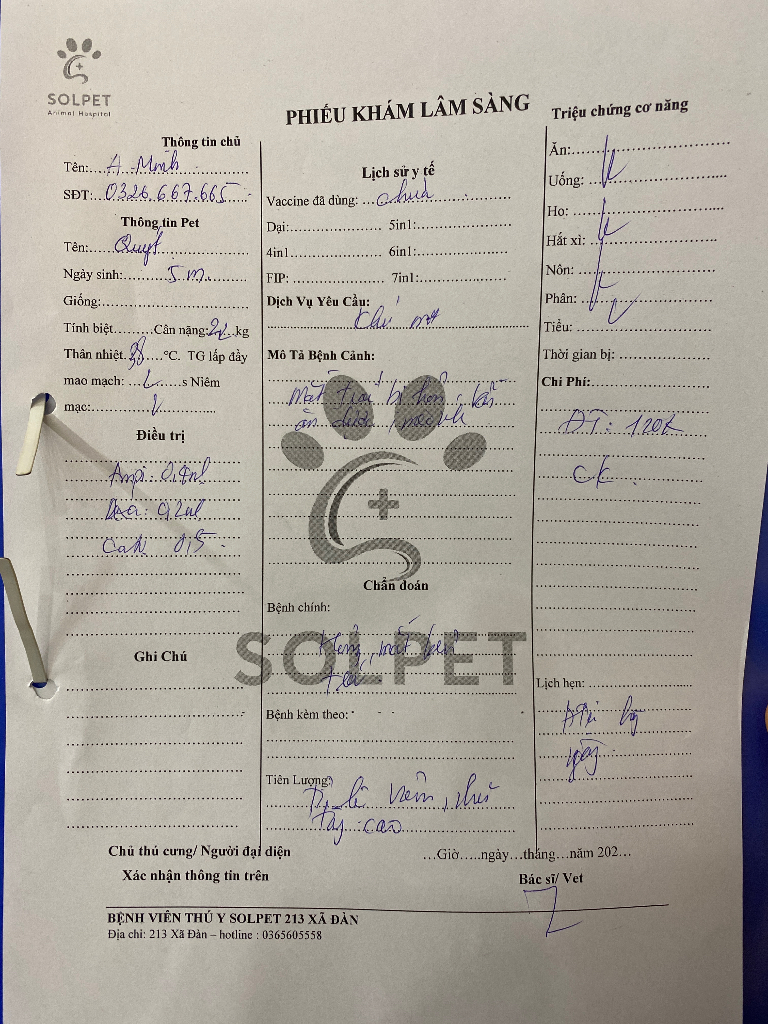 SOLPET
Animal Hospital
PHIẾU KHÁM LÂM SÀNG
Thông tin chủ
Tên: A Minh
SĐT: 0326.667.665
Thông tin Pet
Tên: Quýt
Ngày sinh: 5 m
Giống:
Tính biệt Cân nặng: kg
Thân nhiệt °C. TG lấp đầy
mao mạch: s Niêm
mạc:
Điều trị
Ampi: 0,4ml
0,2ml
0,5
Ghi Chú
Lịch sử y tế
Vaccine đã dùng: chưa
Dại: 5in1:
4in1 6in1:
FIP: 7in1:
Dịch Vụ Yêu Cầu:
Khám mắt
Mô Tả Bệnh Cảnh:
Mắt trái bị
ăn được
SOLPET
Chẩn đoán
Bệnh chính:
mắt bên
trái
Bệnh kèm theo:
Tiên Lượng:
Tỷ lệ viêm,
cao
Triệu chứng cơ năng
Ăn:
Uống:
Ho:
Hắt xì:
Nôn:
Phân:
Tiểu:
Thời gian bị:
Chi Phí:
ĐT: 120K
CK
Lịch hẹn:
Chủ thú cưng/ Người đại diện
Xác nhận thông tin trên
…Giờ…..ngày…tháng…năm 202…
Bác sĩ/ Vet
BỆNH VIỆN THÚ Y SOLPET 213 XÃ ĐÀN
Địa chỉ: 213 Xã Đàn – hotline : 0365605558